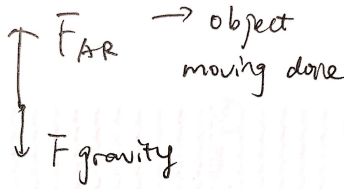 F_AR → object
moving done
F gravity